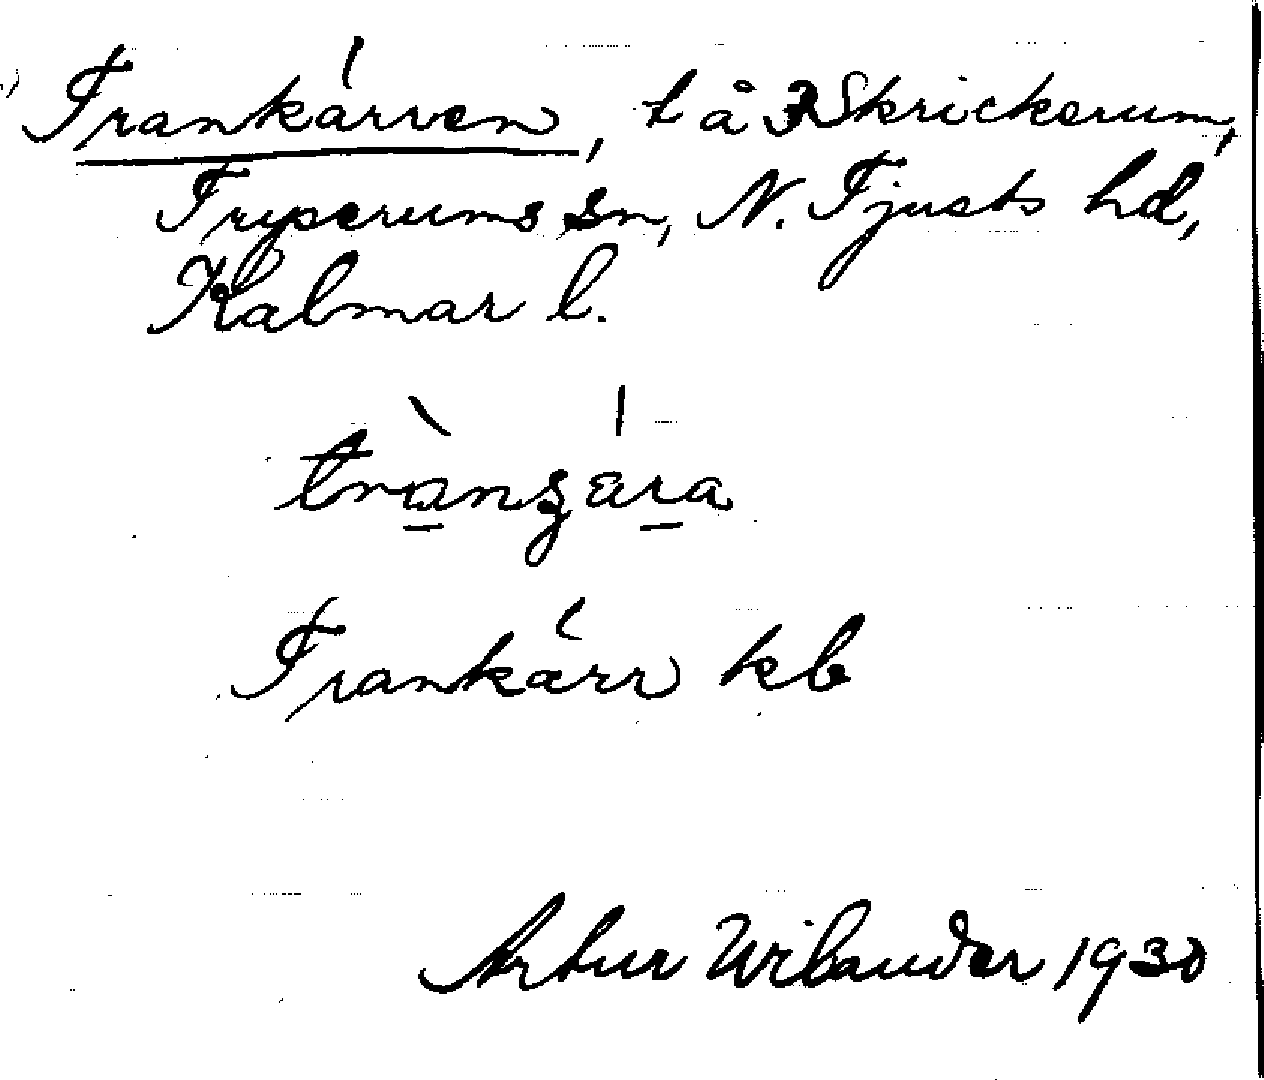 Trankárren, t å Skrickerum,
Tryserums sn, N. Tjusts hd,
Kalmar l.
Trankärr kb
Artur Wilander 1930